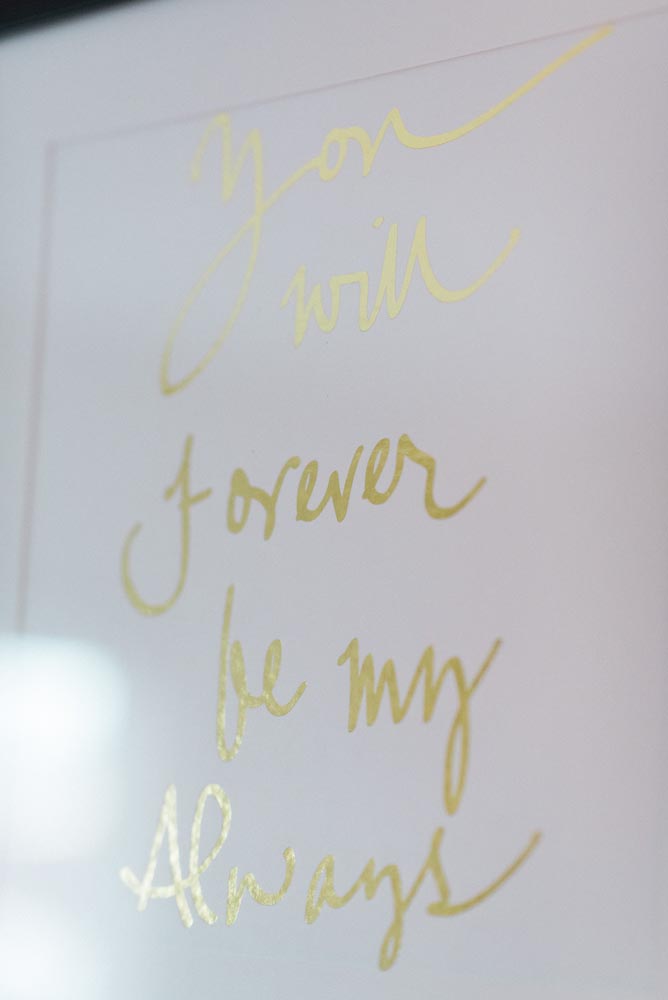 You
will
forever
be my
Always